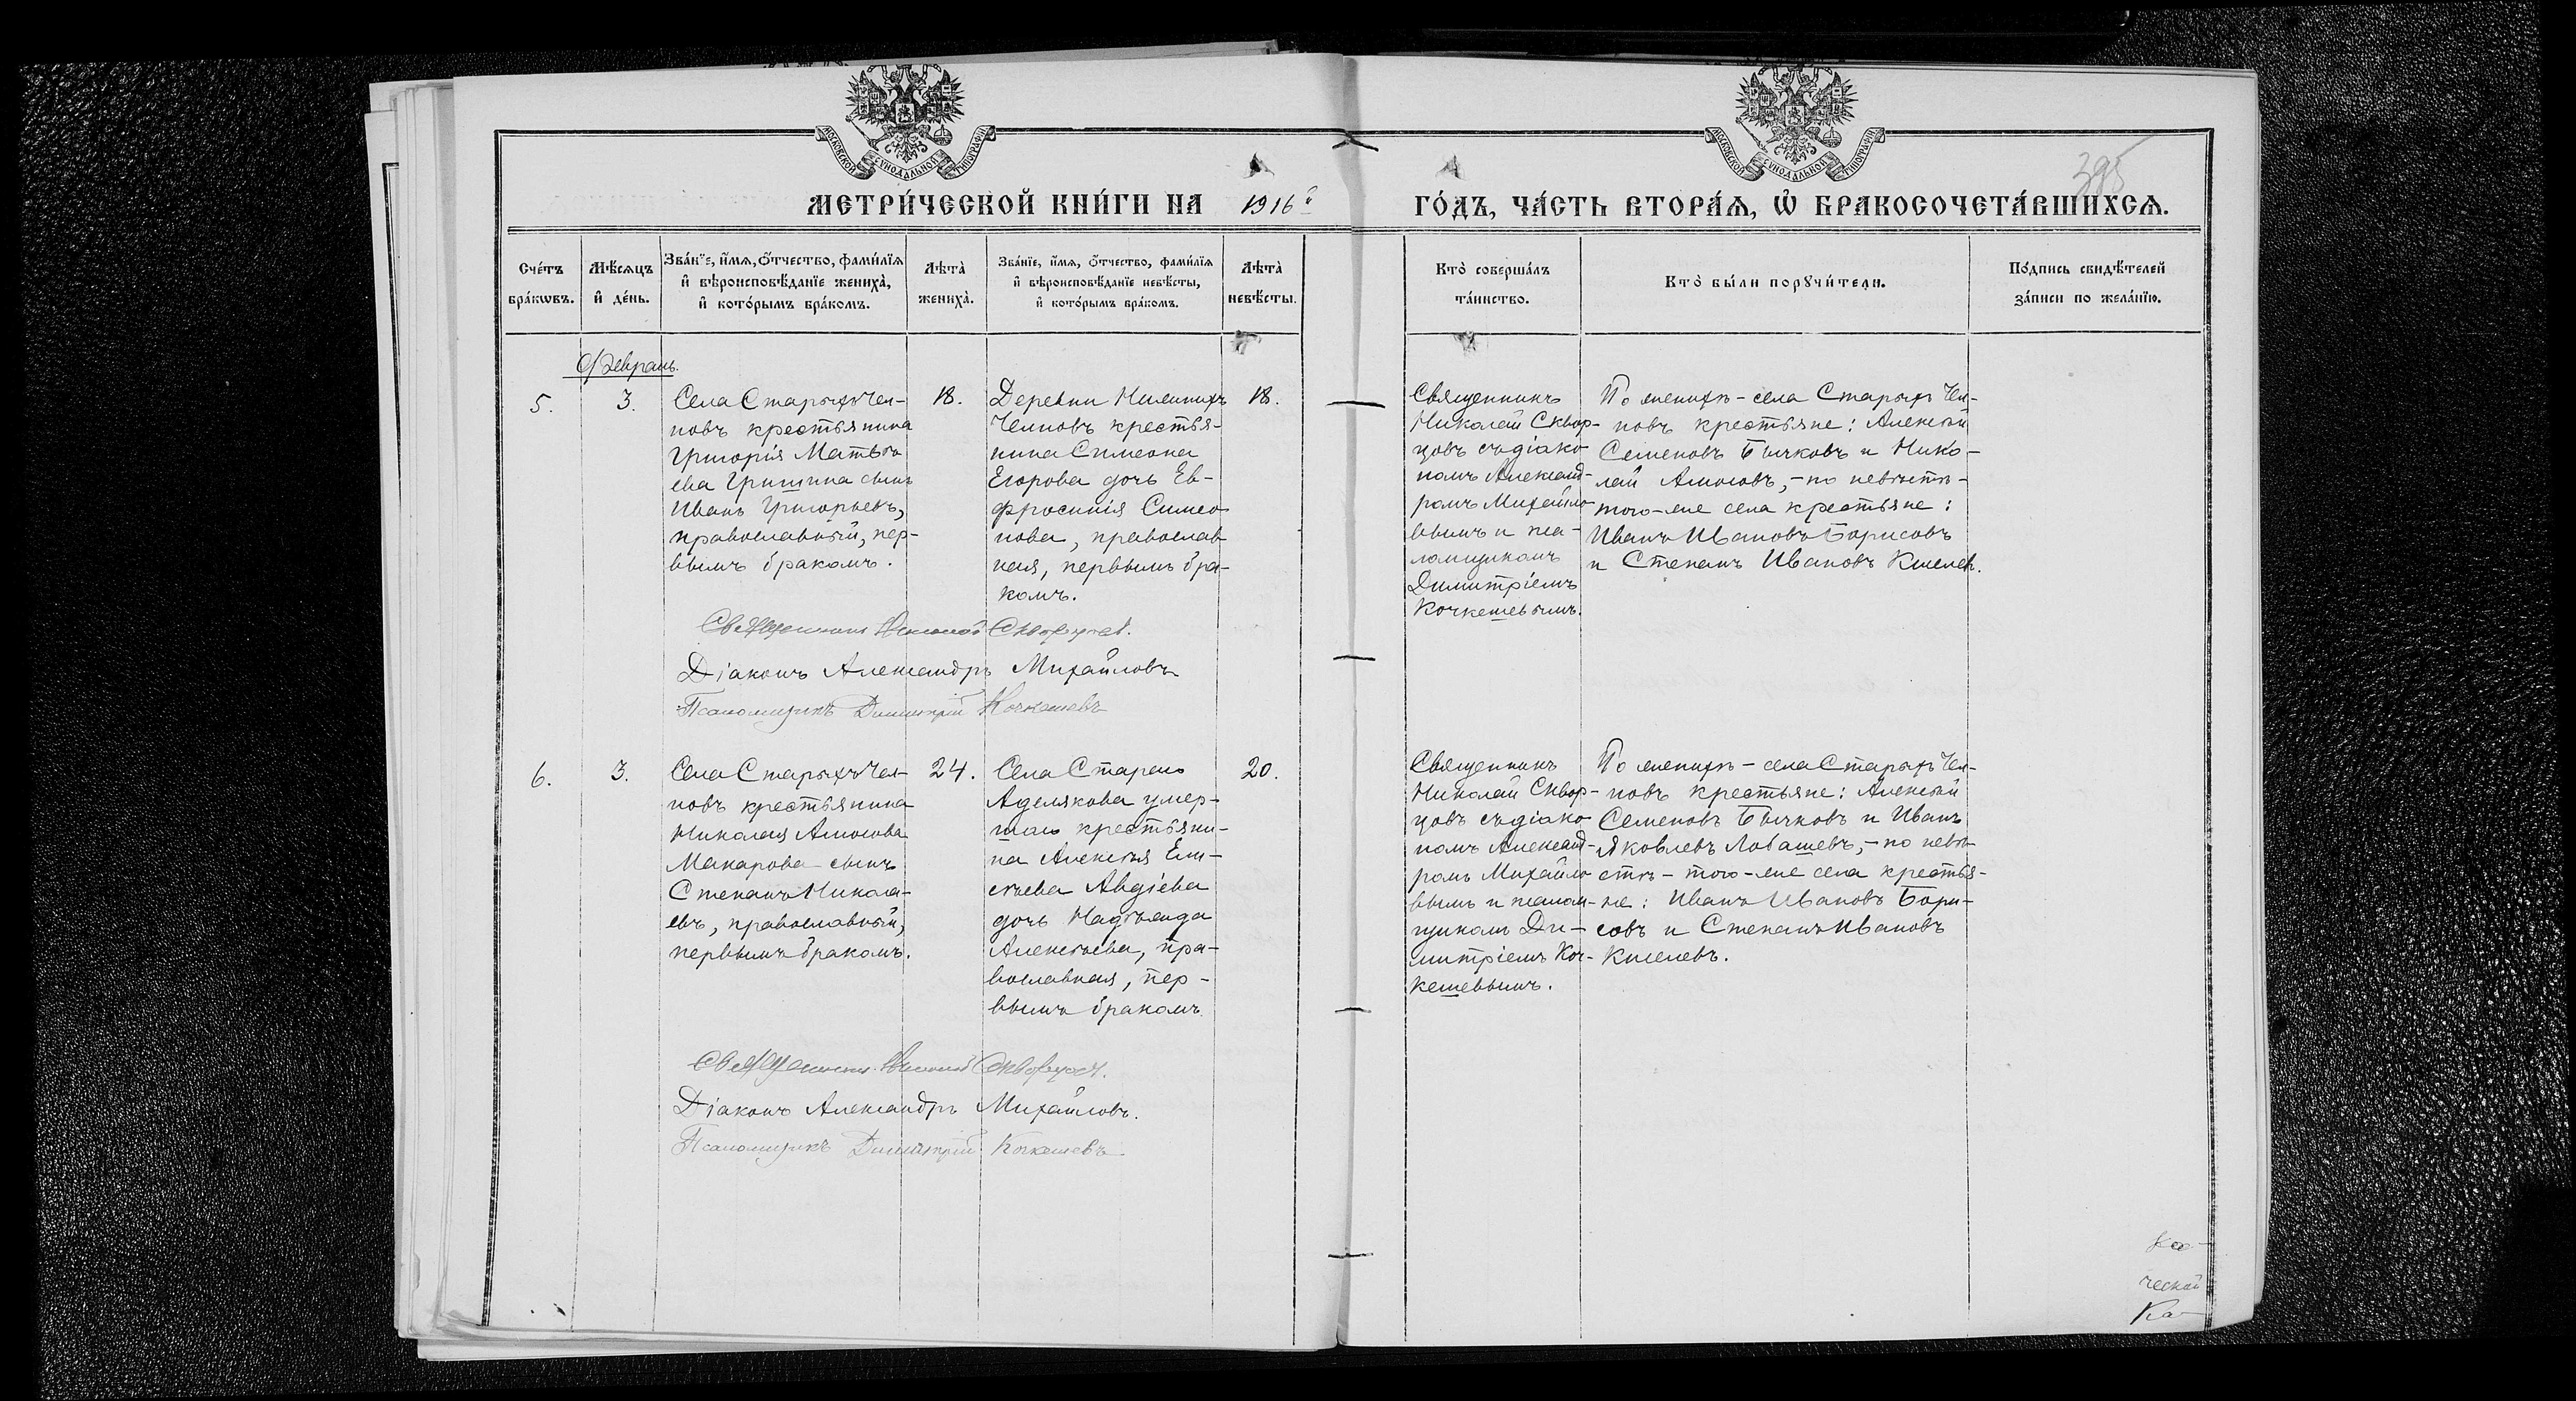 МОСКОВСКОЙ СѴНОДАЛЬНОЙ ТИПОГРАФІИ
МОСКОВСКОЙ СѴНОДАЛЬНОЙ ТИПОГРАФІИ
395
МЕТРИ́ЧЕСКОЙ КНИ́ГИ НА 1916й ГО́ДЪ, ЧА́СТЬ ВТОРА́Я, Ѡ҆ БРАКОСОЧЕТА́ВШИХСѦ.
Сче́тъ бра́кѡвъ.
Мѣ́сяцъ и҆ де́нь.
Зва́нїе, и҆́мя, ѻ҆́тчество, фами́лїя
и҆ вѣроисповѣ́данїе жениха̀,
и҆ кото́рымъ бра́комъ.
Лѣта̀ жениха̀.
Зва́нїе, и҆́мя, ѻ҆́тчество, фами́лїя
и҆ вѣроисповѣ́данїе невѣ́сты,
и҆ кото́рымъ бра́комъ.
Лѣта̀ невѣ́сты.
Кто̀ соверша́лъ
та́инство.
Кто̀ бы́ли порꙋчи́тели.
По́дпись свидѣ́телей
за́писи по жела́нїю.
Февраль.
5.
3.
Села Старыхъ Чел-
новъ крестьянина
Григорія Матвѣ
ева Гришина сынъ
Иванъ Григорьевъ,
православный, пер-
вымъ бракомъ.
18.
Деревни Нижнихъ
Челновъ крестья-
нина Симеона
Егорова дочь Ев-
фросинія Симео
нова, православ
ная, первымъ бра-
комъ.
18.
Священникъ
Николай Сквор-
цовъ съ діако
номъ Александ-
ромъ Михайло
вымъ и пса-
ломщикомъ
Димитріемъ
Кочкешевымъ.
По женихѣ - села Старыхъ Чел-
новъ крестьяне: Алексѣй
Семеновъ Бычковъ и Нико-
лай Амосовъ, - по невѣстѣ -
того-же села крестьяне:
Иванъ Ивановъ Борисовъ
и Степанъ Ивановъ Киселев.
Священникъ Николай Скворцовъ.
Діаконъ Александръ Михайловъ
Псаломщикъ Димитрій Кочкешевъ
6.
3.
Села Старыхъ Чел-
новъ крестьянина
Николая Амосова
Макарова сынъ
Степанъ Никола-
евъ, православный,
первымъ бракомъ.
24.
Села Стараго
Аделякова умер-
шаго крестьяни-
на Алексѣя Ели-
сѣева Авдіева
дочь Надѣжда
Алексѣева, пра-
вославная, пер-
вымъ бракомъ
20.
Священникъ
Николай Сквор-
цовъ съ діако
номъ Александ-
ромъ Михайло
вымъ и псалом-
щикомъ Ди-
митріемъ Коч-
кешевымъ.
По женихѣ - села Старыхъ Чел-
новъ крестьяне: Алексѣй
Семеновъ Бычковъ и Иванъ
Яковлевъ Лобашевъ, - по невѣ
стѣ - того-же села крестья-
не: Иванъ Ивановъ Бори-
совъ и Степанъ Ивановъ
Киселевъ.
Священникъ Николай Скворцовъ.
Діаконъ Александръ Михайловъ.
Псаломщикъ Димитрій Кочкешевъ
ческой
Ка-